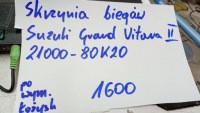 Skrzynia biegów
Suzuki Grand Vitara II
21000-80K20
po
wym.
łożysk
1600